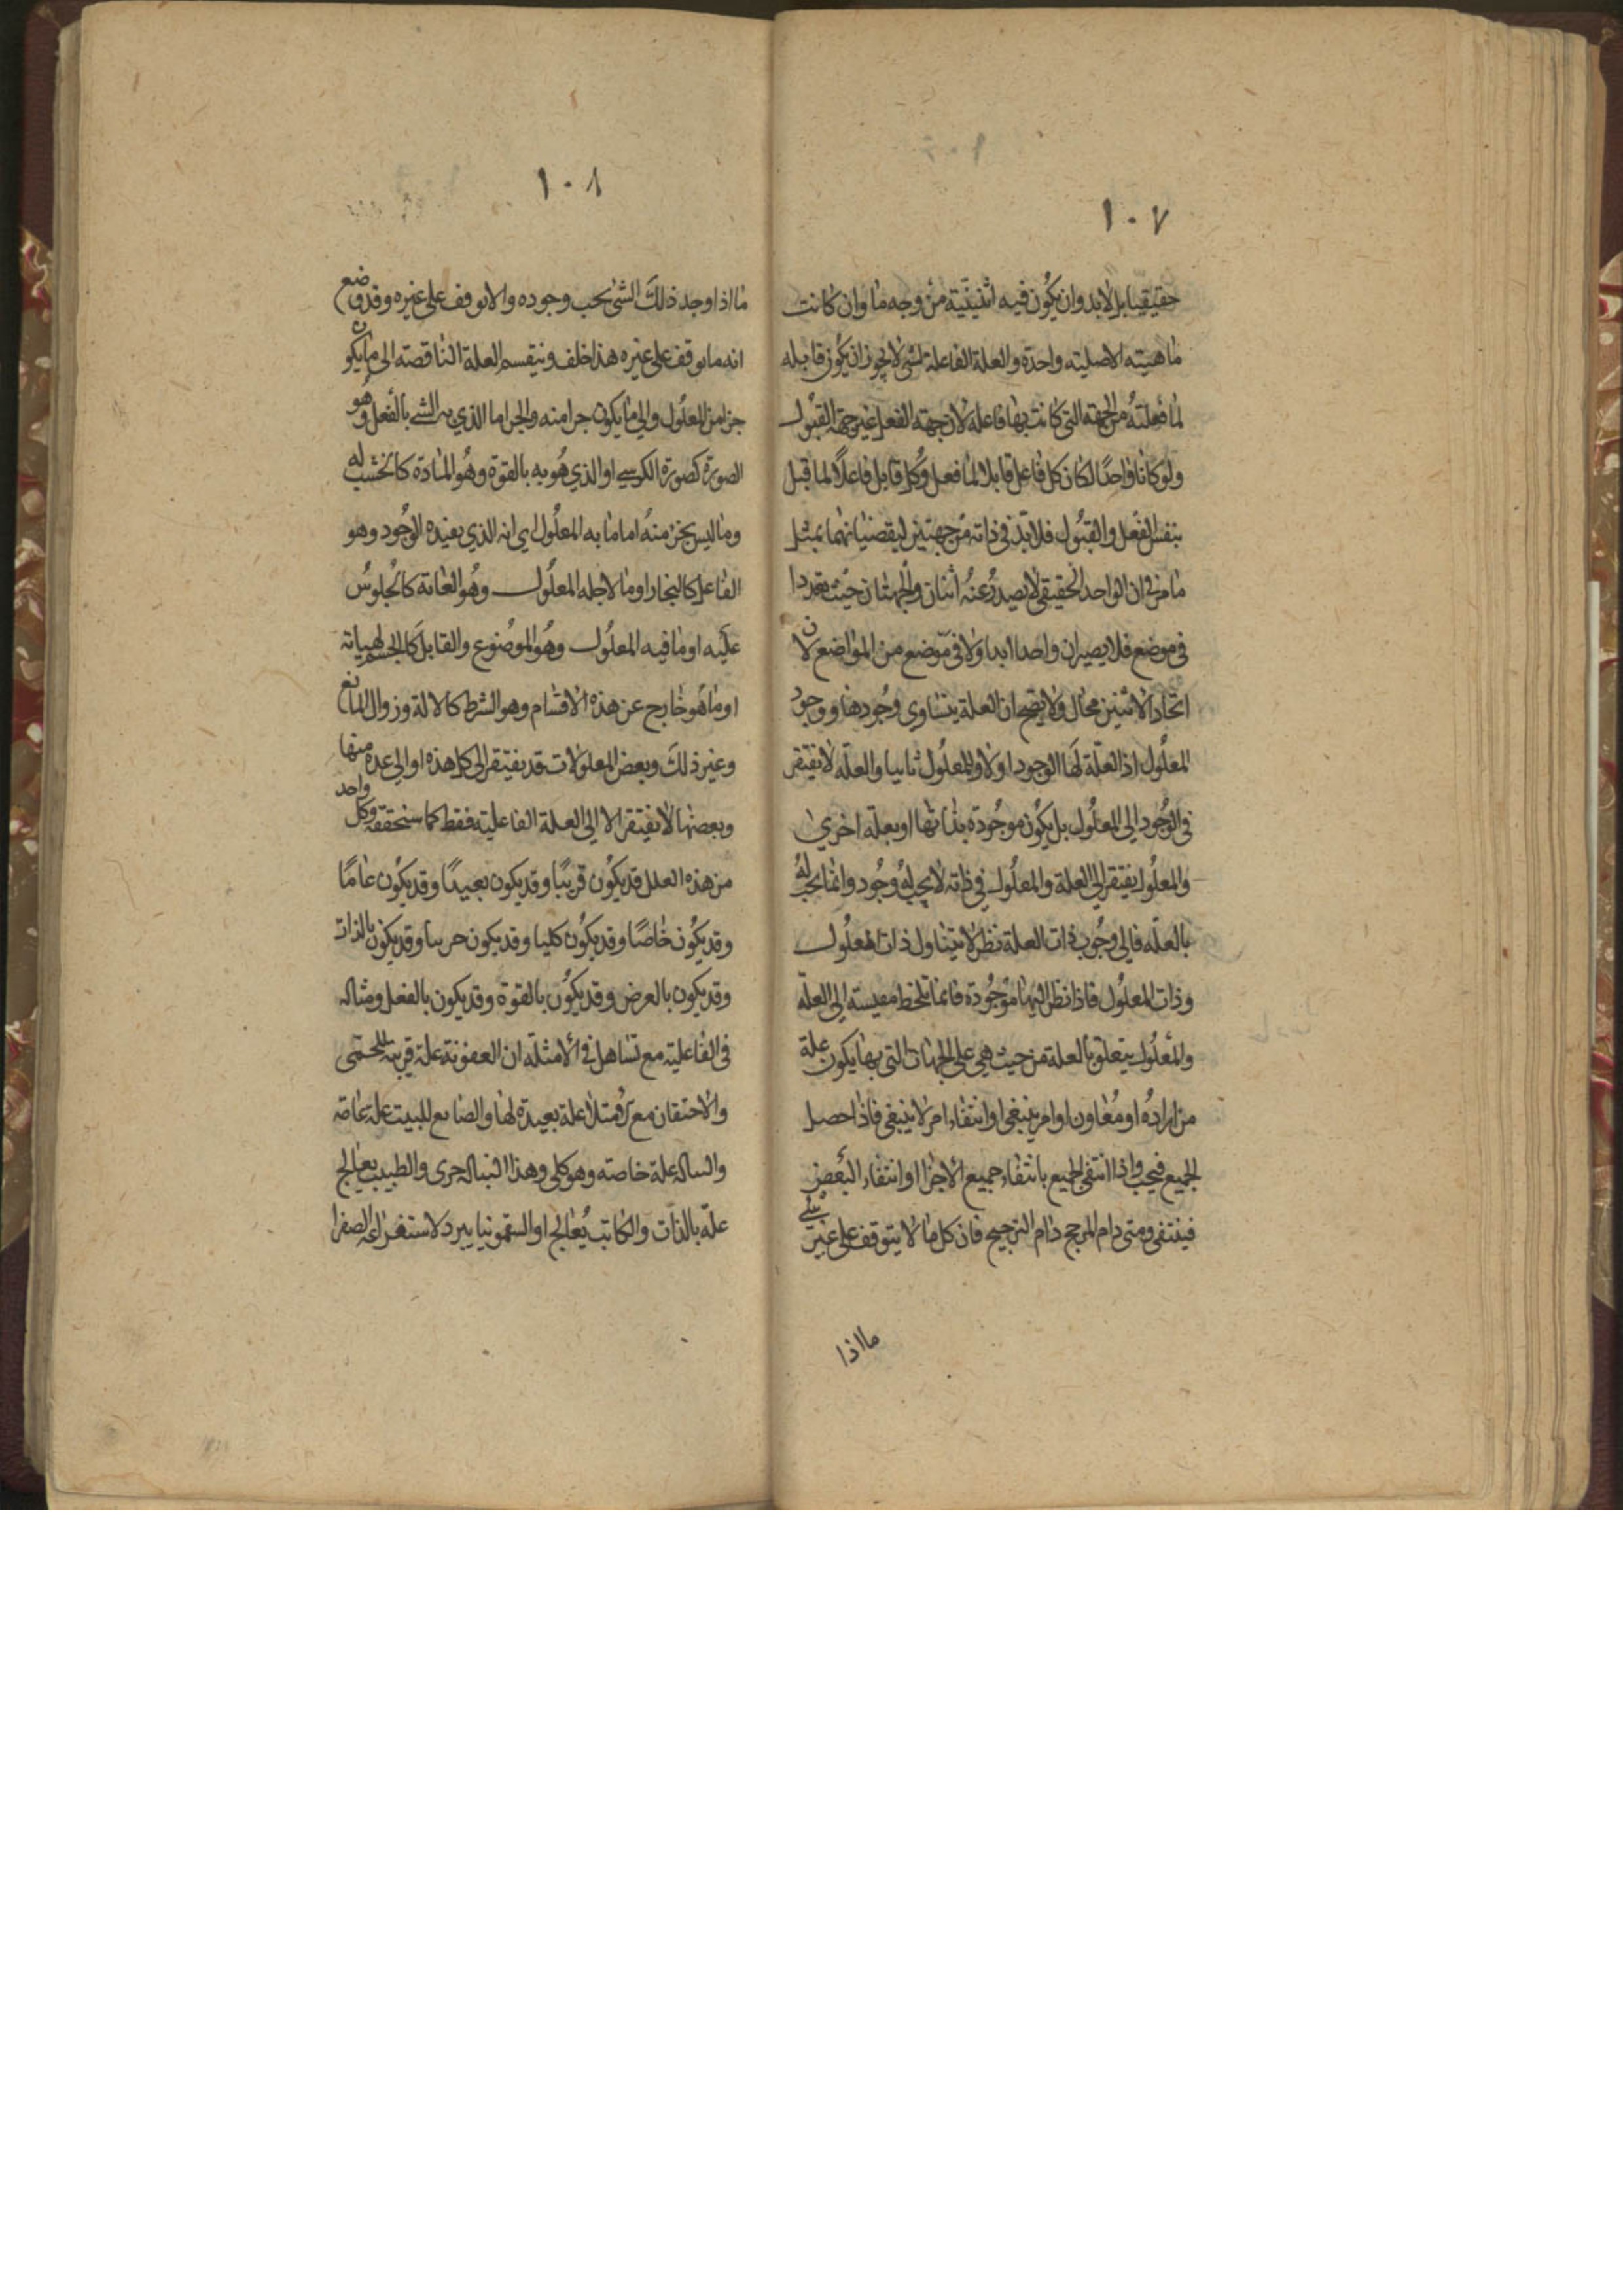 ١٠٧
حقيقيا بل لابد وان يكون فيه اثنينية من وجه ما وان كانت
ماهيته الاصليته واحدة والعلة الفاعلة لشى لا يجوز ان يكون قابله
لما فعلته من الجهة التى كانت بها فاعله لان جهة الفعل غير جهة القبول
ولو كانا واحدًا لكان كل فاعل قابلا لما فعل وكل قابل فاعلًا لما قبل
بنفس الفعل والقبول فلابد فى ذاته من جهتين ليقضيانهما بمثل
ما مر فى ان الواحد الحقيقى لا يصدر عنه اثنان والجهتان حيث تعددا
فى موضع فلا يصيران واحدا ابدا ولا فى موضع من المواضع لان
اتحاد الاثنين محال ولا يصح ان العلة يتساوى وجودها ووجود
المعلول اذ العلة لها الوجود اولا والمعلول ثانيا والعلة لا تفتقر
فى الوجود الى المعلول بل يكون موجودة بذاتها او بعلة اخرى
والمعلول يفتقر الى العلة والمعلول فى ذاته لا يجب له وجود وانما يجب له
بالعله فالى وجوب ذات العلة نظر لا يتناول ذات المعلول
وذات المعلول فاذا نظر اليها موجودة فانما تلحظ مقيسته الى العلة
والمعلول يتعلق بالعلة من حيث هى على الجهات التى بها يكون علة
من ارادهُ او معاون او امر ينبغى او انتفاء امر لا ينبغى فاذا حصل
الجميع فيجب واذا انتفى الجميع بانتفاء جميع الاجزا او انتفاء البعض
فينتفى ومتى دام المرجح دام الترجيح فان كل ما لا يتوقف على غير شئ
ما اذا
١٠٨
ما اذا وجد ذلك الشى يجب وجوده والا توقف على غيره وقد وضع
انه ما توقف على غيره هذا خلف ونيقسم العلة الناقصته الى ما يكون
جزا من المعلول والى ما يكون جزا منه والجزا ما الذي به الشے بالفعل وهو
الصورة كصورة الكرسے او الذي هو به بالقوة وهو المادة كالخشب له
وما ليس بجزء منه اما ما به المعلول اى انه الذي يفيده الوجود وهو
الفاعل كالنجار او ما لاجله المعلول وهو الغاية كالجلوس
عليه او ما فيه المعلول وهو الموضوع والقابل كالجسم لهياته
او ما هو خارج عن هذه الاقسام وهو الشرط كالالة وزوال المانع
وغير ذلك وبعض المعلولات قد يفتقر الى كل هذه او الى عدة منها
وبعضها لا يفتقر الا الى العلة الفاعليته فقط كما سنحققه وكل واحد
من هذه العلل قد يكون قريبًا وقد يكون بعيدًا وقد يكون عامًا
وقد يكون خاصًا وقد يكون كليا وقد يكون جزيا وقد يكون بالذات
وقد يكون بالعرض وقد يكون بالقوة وقد يكون بالفعل ومثاله
فى الفاعليته مع تساهل فى الامثلة ان العفونة علة قريبة للحمى
والاحتقان مع علة بعيدة لها والصانع للبيت علة عامة
والبنا له علة خاصته وهو كلى وهذا البنا له جزى والطبيب يعالج
علة بالذات والكاتب يُعالج او السقمونيا يبرد لاستفراغه الصفرا